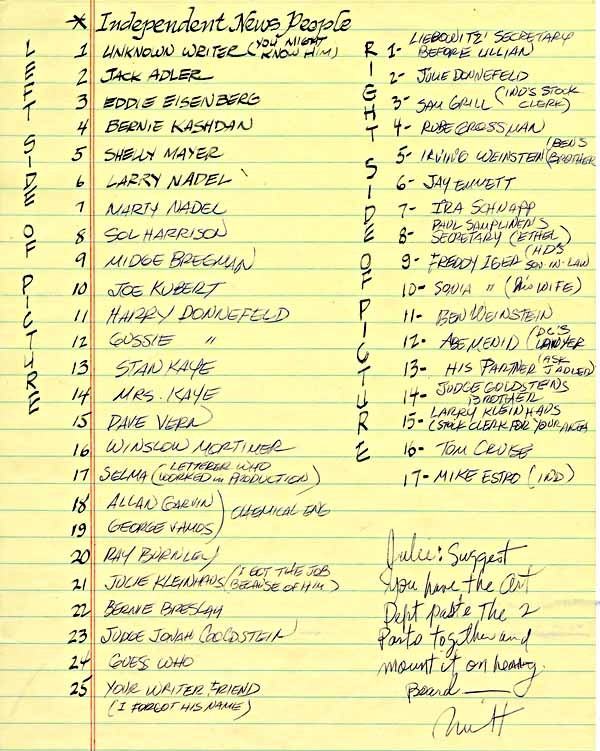 * Independent News People
LEFT SIDE OF PICTURE
1 UNKNOWN WRITER (YOU MIGHT KNOW HIM)
2 JACK ADLER
3 EDDIE EISENBERG
4 BERNIE KASHDAN
5 SHELLY MAYER
6 LARRY NADEL
7 MARTY NADEL
8 SOL HARRISON
9 MIDGE BREGMAN
10 JOE KUBERT
11 HARRY DONNEFELD
12 GUSSIE "
13 STAN KAYE
14 MRS. KAYE
15 DAVE VERN
16 WINSLOW MORTIMER
17 SELMA (LETTERER WHO WORKED IN PRODUCTION)
18 ALLAN GARVIN
19 GEORGE VAMOS
CHEMICAL ENG
20 RAY BURNLEY
21 JULIE KLEINHAUS (I GOT THE JOB BECAUSE OF HIM)
22 BERNIE BRESLAU
23 JUDGE JONAH GOLDSTEIN
24 GUESS WHO
25 YOUR WRITER FRIEND
(I FORGOT HIS NAME)
RIGHT SIDE OF PICTURE
1- LIEBOWITZ' SECRETARY
BEFORE LILLIAN)
2- JULIE DONNEFELD
3- SAM GRILL (IND'S STOCK CLERK)
4- RUBE GROSSMAN
5- IRVING WEINSTEIN (BEN'S BROTHER
6- JAY EMMETT
7- IRA SCHNAPP
8- PAUL SAMPLINER'S
SECRETARY (ETHEL)
9- FREDDY IGER (HD'S SON-IN-LAW
10- SONIA " (HIS WIFE)
11- BEN WEINSTEIN
12- ABE MENID (DC'S LAWYER
13- HIS PARTNER (ASK J ADLER)
14- JUDGE GOLDSTEINS
BROTHER
15- LARRY KLEINHAUS
(STOCK CLERK FOR YOUR AREA
16- TOM CRUISE
17- MIKE ESTRO (IND)
Julie: Suggest
you have the Art
Dept paste the 2
Parts together and
mount it on heavy
Board